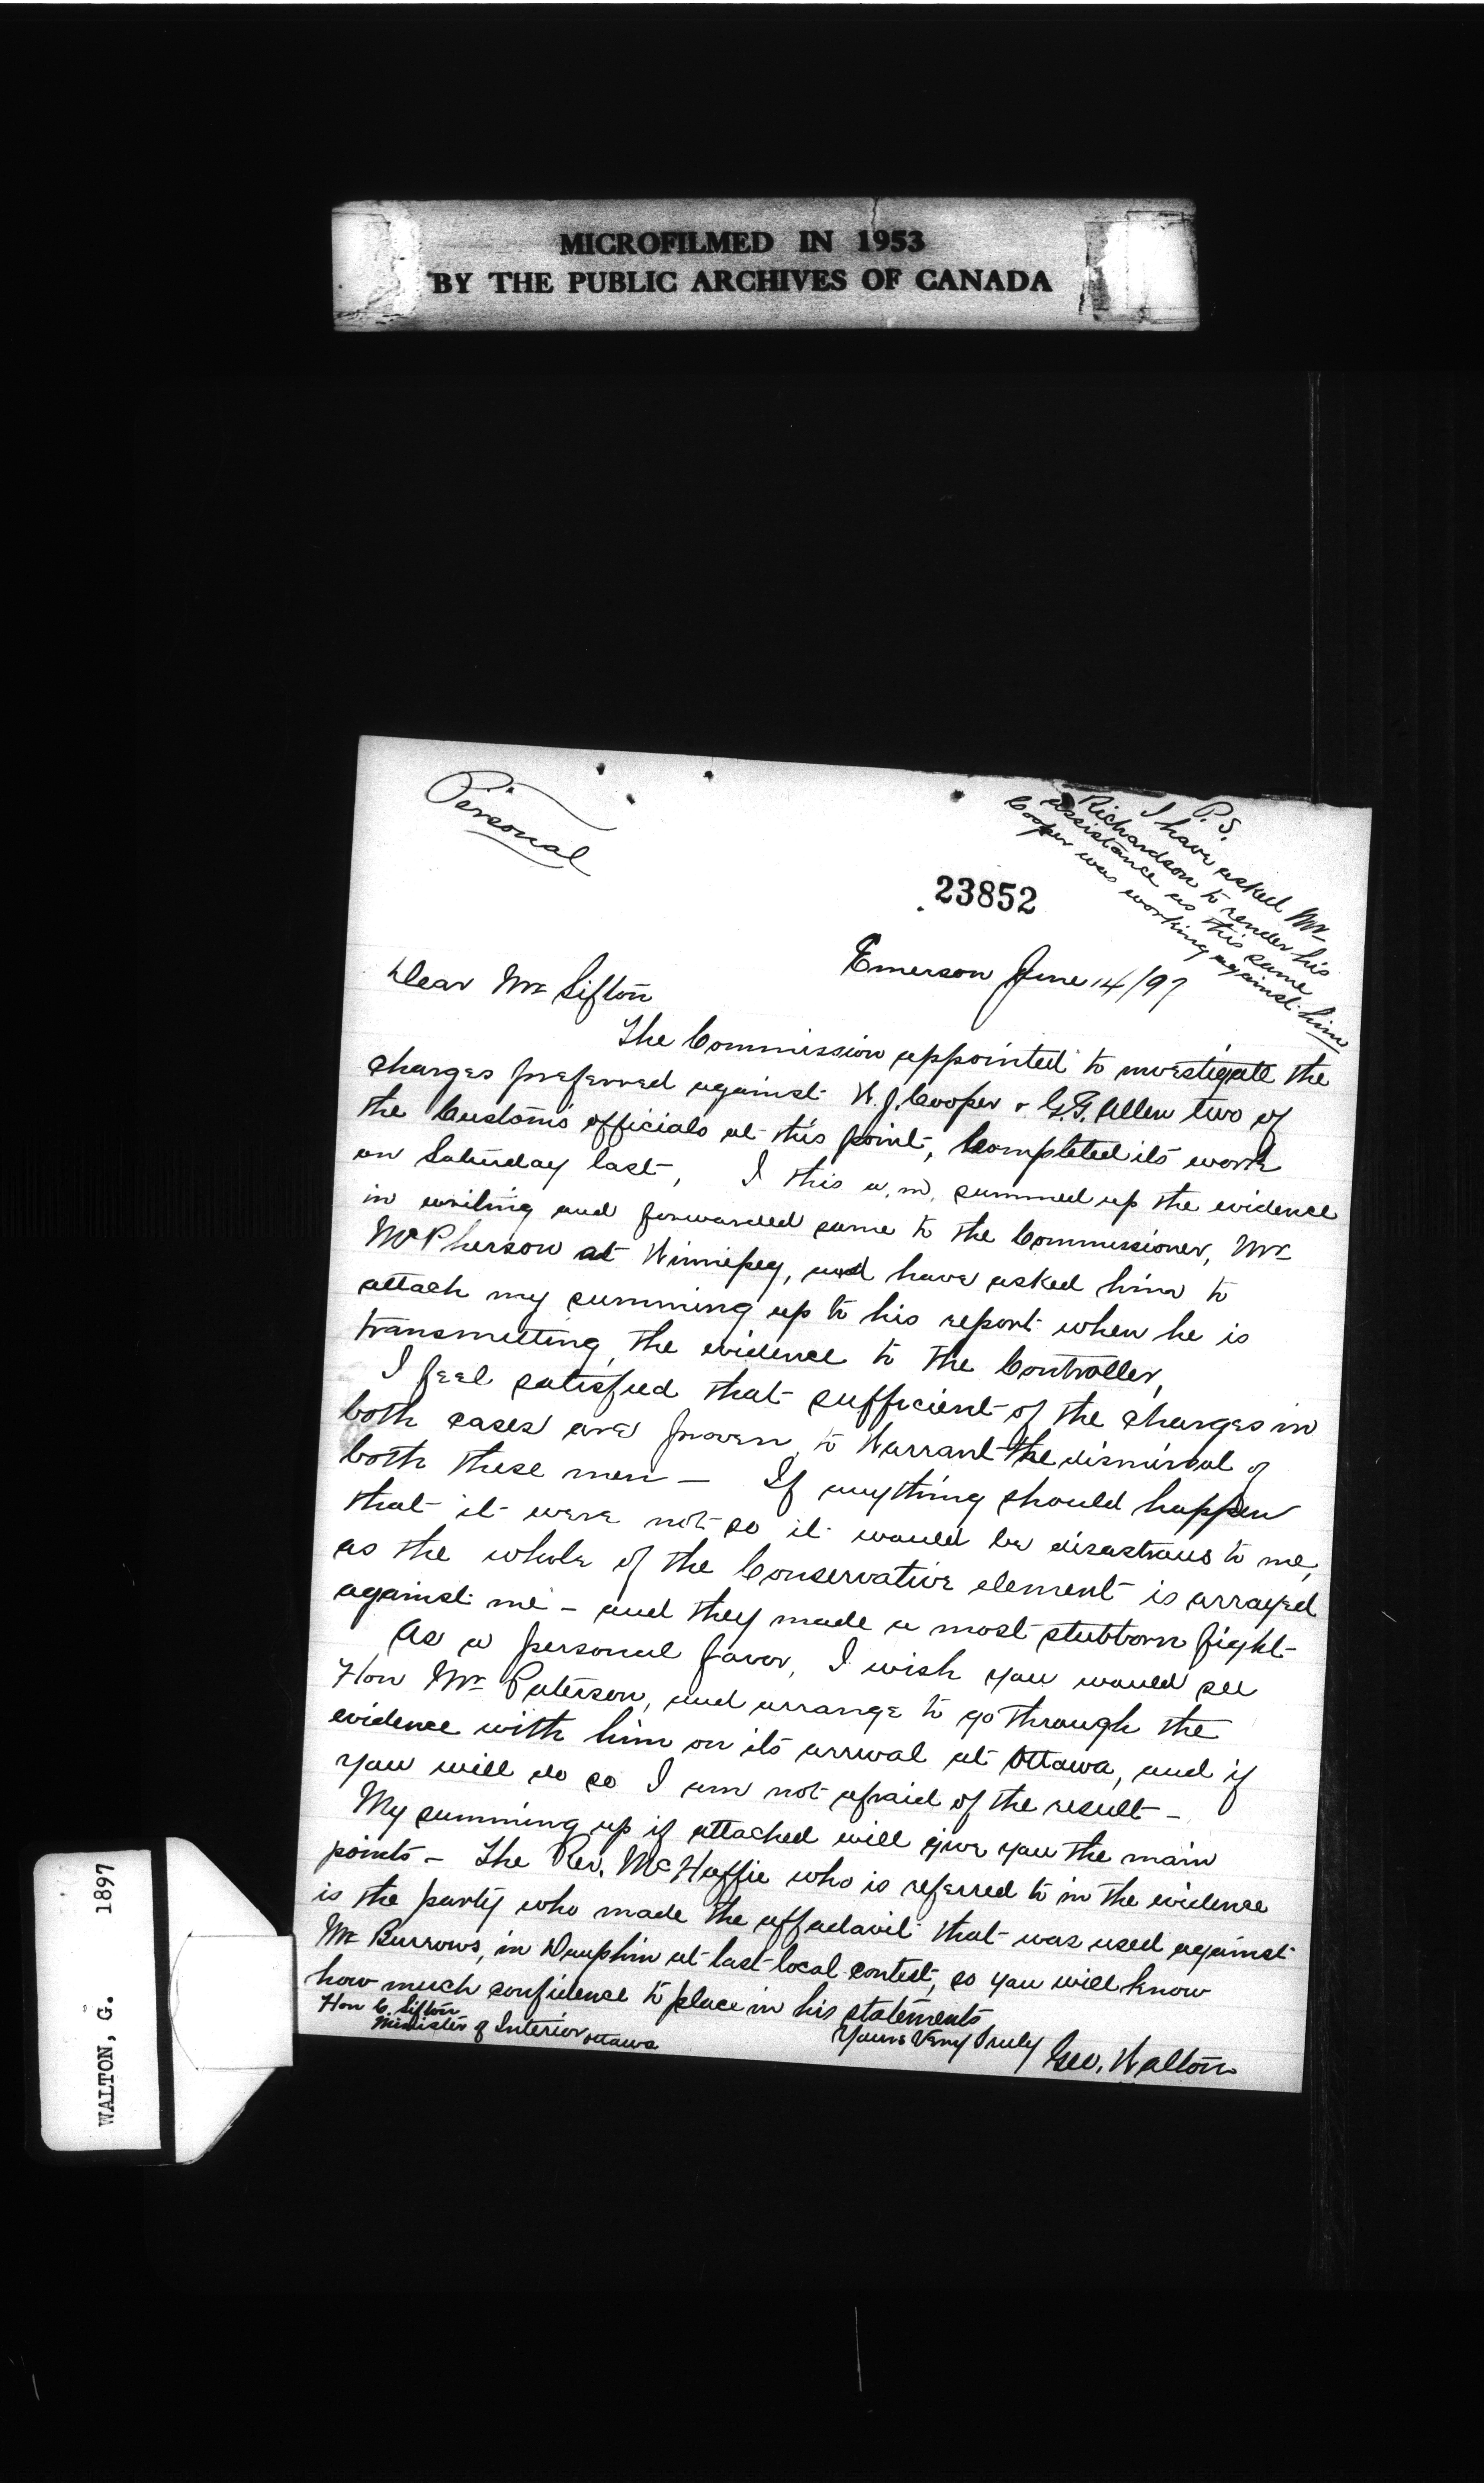 MICROFILMED IN 1953
BY THE PUBLIC ARCHIVES OF CANADA
Personal
P.S.
I have asked Mr
Richardson to render his
assistance as this same
Cooper was working against him
23852
Emerson June 14/97
Dear Mr Sifton
The Commission appointed to investigate the
charges preferred against W. J. Cooper & G. F. Allen two of
the Customs officials at this point, completed its work
on Saturday last, I this a.m. summed up the evidence
in writing and forwarded same to the Commissioner, Mr
McPherson at Winnipeg, and have asked him to
attach my summing up to his report when he is
transmitting the evidence to the Controller,
I feel satisfied that sufficient of the charges in
both cases are proven to warrant the dismissal of
both these men — If anything should happen
that it were not so it would be disastrous to me,
as the whole of the Conservative element is arrayed
against me – and they made a most stubborn fight –
As a personal favor, I wish you would see
Hon Mr Paterson, and arrange to go through the
evidence with him on its arrival at Ottawa, and if
you will do so I am not afraid of the result –
My summing up if attached will give you the main
points – The Rev. McHaffie who is referred to in the evidence
is the party who made the affadavit that was used against
Mr Burrows, in Dauphin at last local contest, so you will know
how much confidence to place in his statements
Yours Very Truly
Geo. Walton
Hon C. Sifton
Minister of Interior Ottawa
WALTON, G. 1897